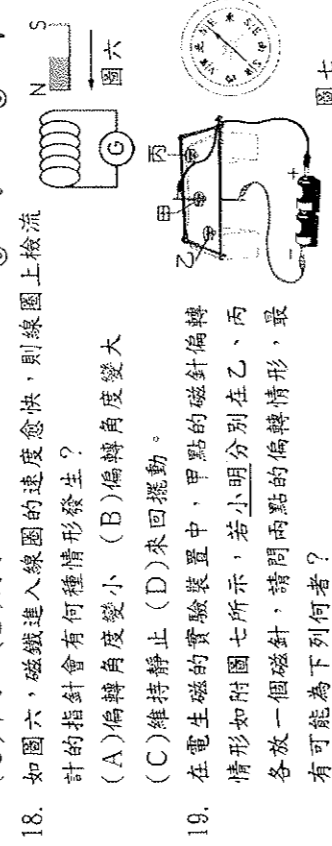 18. 如圖六，磁鐵進入線圈的速度愈快，則線圈上檢流
計的指針會有何種情形發生？
(A)偏轉角度變小 (B)偏轉角度變大
(C)維持靜止 (D)來回擺動。
N S
G
圖六
19. 在電生磁的實驗裝置中，甲點的磁針偏轉
情形如附圖七所示，若小明分別在乙、丙
各放一個磁針，請問兩點的偏轉情形，最
有可能為下列何者？
乙 甲 丙
- +
圖七